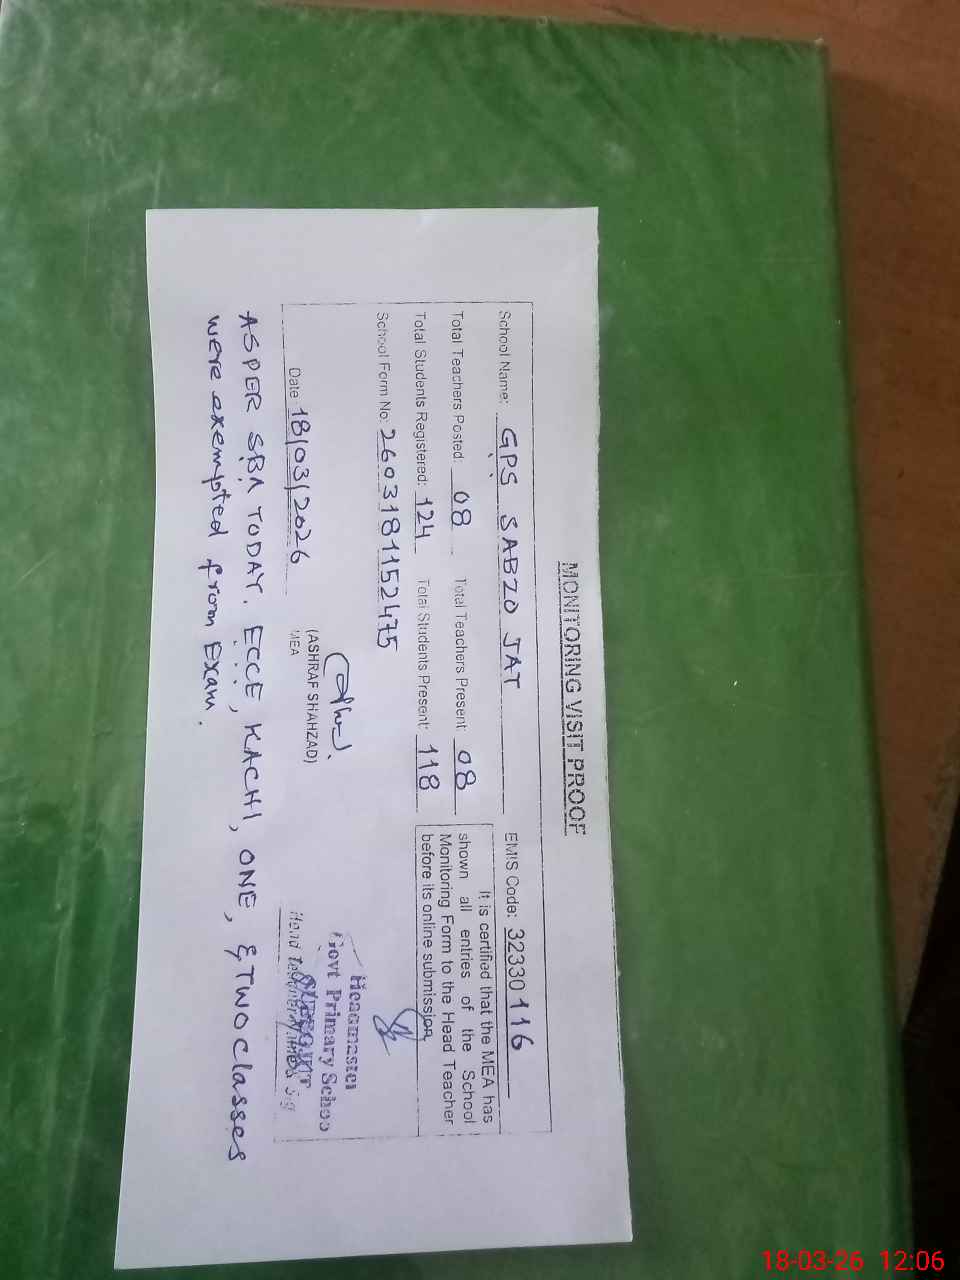 MONITORING VISIT PROOF
School Name: GPS SABZO JAT EMIS Code: 32330116
Total Teachers Posted: 08 Total Teachers Present: 08
Total Students Registered: 124 Total Students Present: 118
School Form No: 2603181152475
It is certified that the MEA has
shown all entries of the School
Monitoring Form to the Head Teacher
before its online submission
Date 18/03/2026
(ASHRAF SHAHZAD)
MEA
Headmaster
Govt Primary School
Head
ASPER SBA TODAY. ECCE, KACHI, ONE, & TWO classes
were exempted from Exam.
18-03-26 12:06